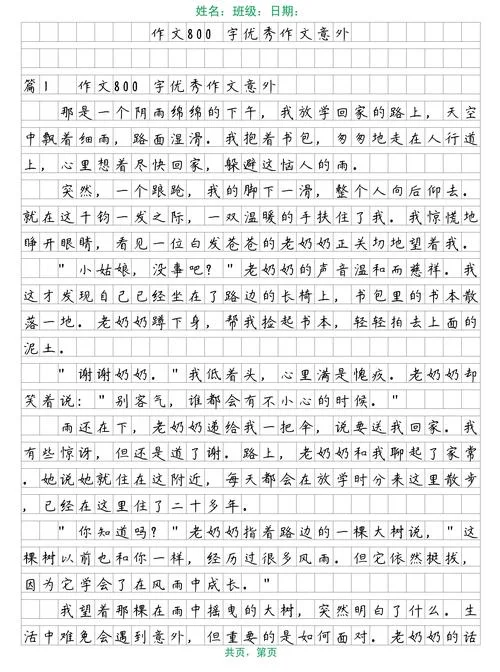 姓名：班级：日期：
作文800 字优秀作文意外
篇1 作文800 字优秀作文意外
那是一个阴雨绵绵的下午，我放学回家的路上，天空
中飘着细雨，路面湿滑。我抱着书包，匆匆地走在人行道
上，心里想着尽快回家，躲避这恼人的雨。
突然，一个踉跄，我的脚下一滑，整个人向后仰去。
就在这千钧一发之际，一双温暖的手扶住了我。我惊慌地
睁开眼睛，看见一位白发苍苍的老奶奶正关切地望着我。
"小姑娘，没事吧？"老奶奶的声音温和而慈祥。我
这才发现自己已经坐在了路边的长椅上，书包里的书本散
落一地。老奶奶蹲下身，帮我捡起书本，轻轻拍去上面的
泥土。
"谢谢奶奶。"我低着头，心里满是愧疚。老奶奶却
笑着说："别客气，谁都会有不小心的时候。"
雨还在下，老奶奶递给我一把伞，说要送我回家。我
有些惊讶，但还是道了谢。路上，老奶奶和我聊起了家常
。她说她就住在这附近，每天都会在放学时分来这里散步
，已经在这里住了二十多年。
"你知道吗？"老奶奶指着路边的一棵大树说，"这
棵树以前也和你一样，经历过很多风雨。但它依然挺拔，
因为它学会了在风雨中成长。"
我望着那棵在雨中摇曳的大树，突然明白了什么。生
活中难免会遇到意外，但重要的是如何面对。老奶奶的话
共页，第页